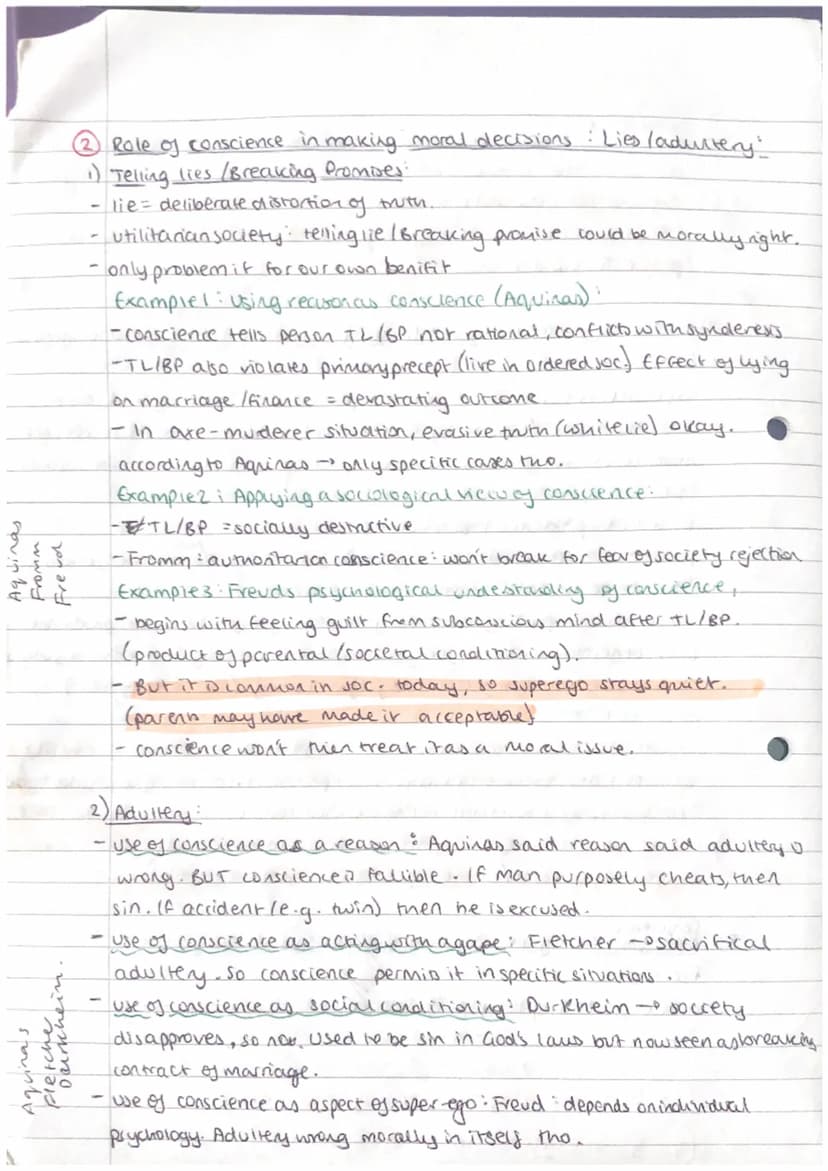 ② Role of conscience in making moral decisions : Lies /adultery:
1) Telling lies /Breaking Promises:
- lie = deliberate distortion of truth.
- utilitarian society: telling lie / Breaking promise could be morally right.
- only problem if for our own benifit
Example 1 : Using reason as conscience (Aquinas) :
- conscience tells person TL/BP not rational, conflicts with synderesis
- TL/BP also violates primary precept (live in ordered soc.) Effect of lying
on marriage /finance = devastating outcome
- In axe-murderer situation, evasive truth (white lie) okay.
according to Aquinas → only specific cases tho.
Example 2 : Applying a sociological view of conscience:
- TL/BP = socially destructive
- Fromm : authoritarian conscience : won't break for fear of society rejection
Aquinas
Fromm
Freud
Example 3 : Freuds psychological understanding of conscience,
- begins with feeling guilt from subconscious mind after TL/BP.
(product of parental /societal conditioning).
- But it is common in soc. today, so superego stays quiet.
(parents may have made it acceptable)
- conscience won't then treat it as a moral issue.
2) Adultery :
- use of conscience as a reason : Aquinas said reason said adultery is
wrong. BUT conscience is fallible. If man purposely cheats, then
sin. If accident (e.g. twin) then he is excused.
- use of conscience as acting with agape : Fletcher → sacrifical
adultery. So conscience permis it in specific situations.
- use of conscience as social conditioning : Durkheim → society
disapproves, so now. Used to be sin in God's laws but now seen as breaking
contract of marriage.
Aquinas
Fletcher
Durkheim.
- use of conscience as aspect of super-ego : Freud : depends on individual
psychology. Adultery wrong morally in itself tho.